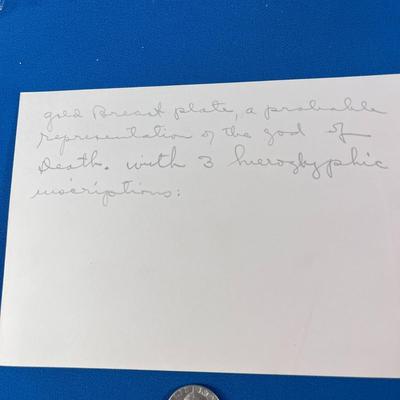 gold Breast plate, a probable
representation of the god of
Death. with 3 hieroglyphic
inscriptions: